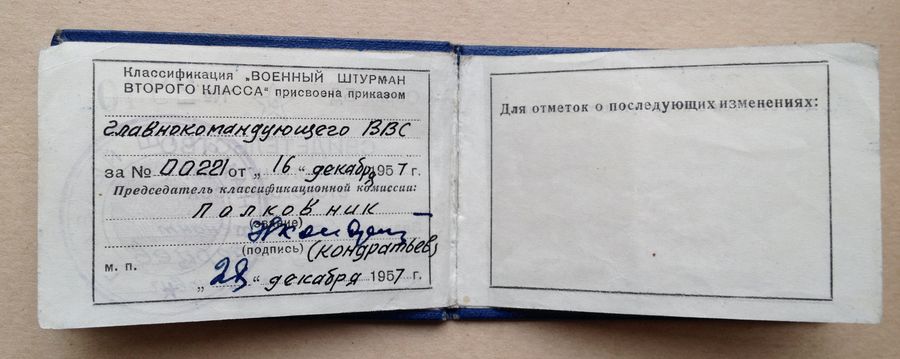 Классификация „ВОЕННЫЙ ШТУРМАН
ВТОРОГО КЛАССА“ присвоена приказом
Главнокомандующего ВВС
за № 00221 от „16“ декабря 1957 г.
Председатель классификационной комиссии:
полковник
(звание)
(подпись) (Кондратьев)
м. п.
„28“ декабря 1957 г.
Для отметок о последующих изменениях: